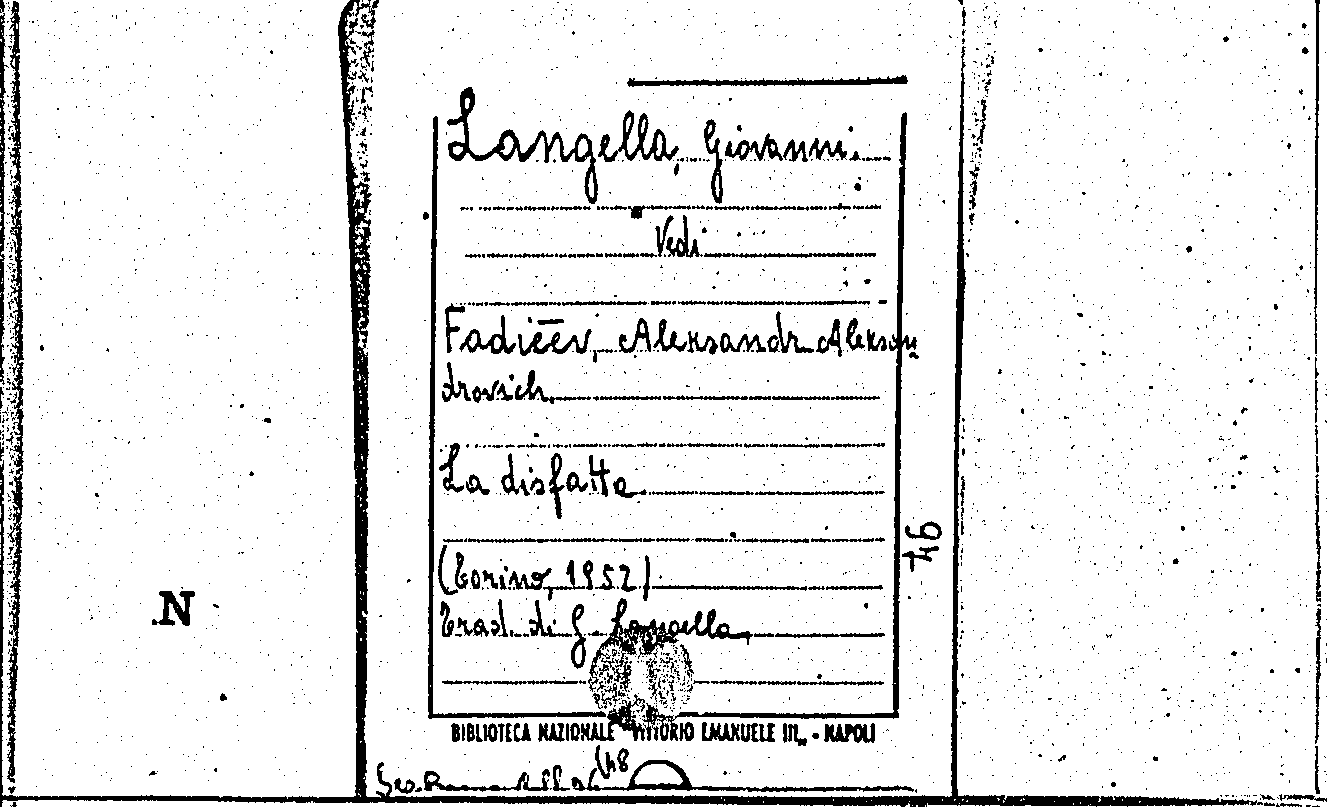 Langella, Giovanni.
Vedi
Fadiēēv, Aleksandr Aleksan
drovich.
La disfatta
(Torino, 1952)
Trad. di G. Langella,
46
.N
BIBLIOTECA NAZIONALE "VITTORIO EMANUELE III„ - NAPOLI